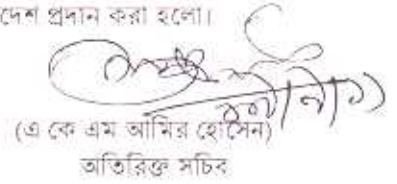 দেশ প্রদান করা হলো।
(এ কে এম আমির হোসেন)
অতিরিক্ত সচিব